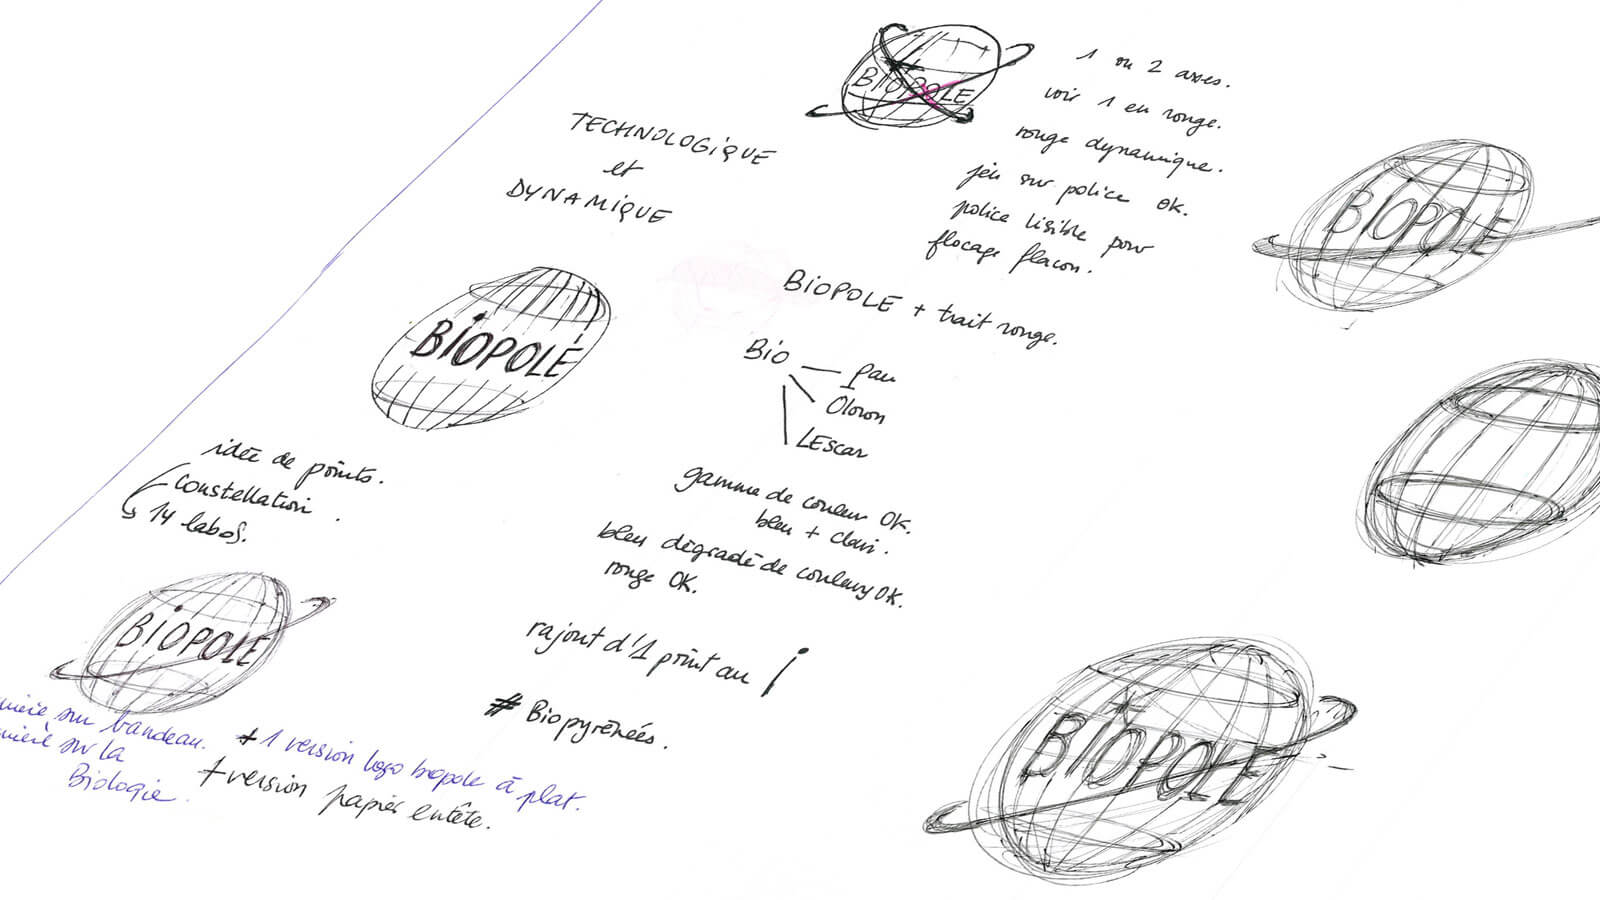 BIOPOLE
1 ou 2 axes.
voir 1 en rouge.
rouge dynamique.
jeu sur police OK.
police lisible pour
flocage flacon.
TECHNOLOGIQUE
et
DYNAMIQUE
BIOPOLE
BIOPOLE + trait rouge.
BIOPOLE
Bio
Pau
Oloron
LEscar
idée de points.
constellation.
14 labos.
gamme de couleur OK.
bleu + clair.
bleu dégradé de couleurs OK.
rouge OK.
rajout d'1 point au i
# Biopyrénées.
BIOPOLE
BIOPOLE
sur bandeau. + 1 version logo biopole à plat.
sur la
Biologie.
+ version papier entête.